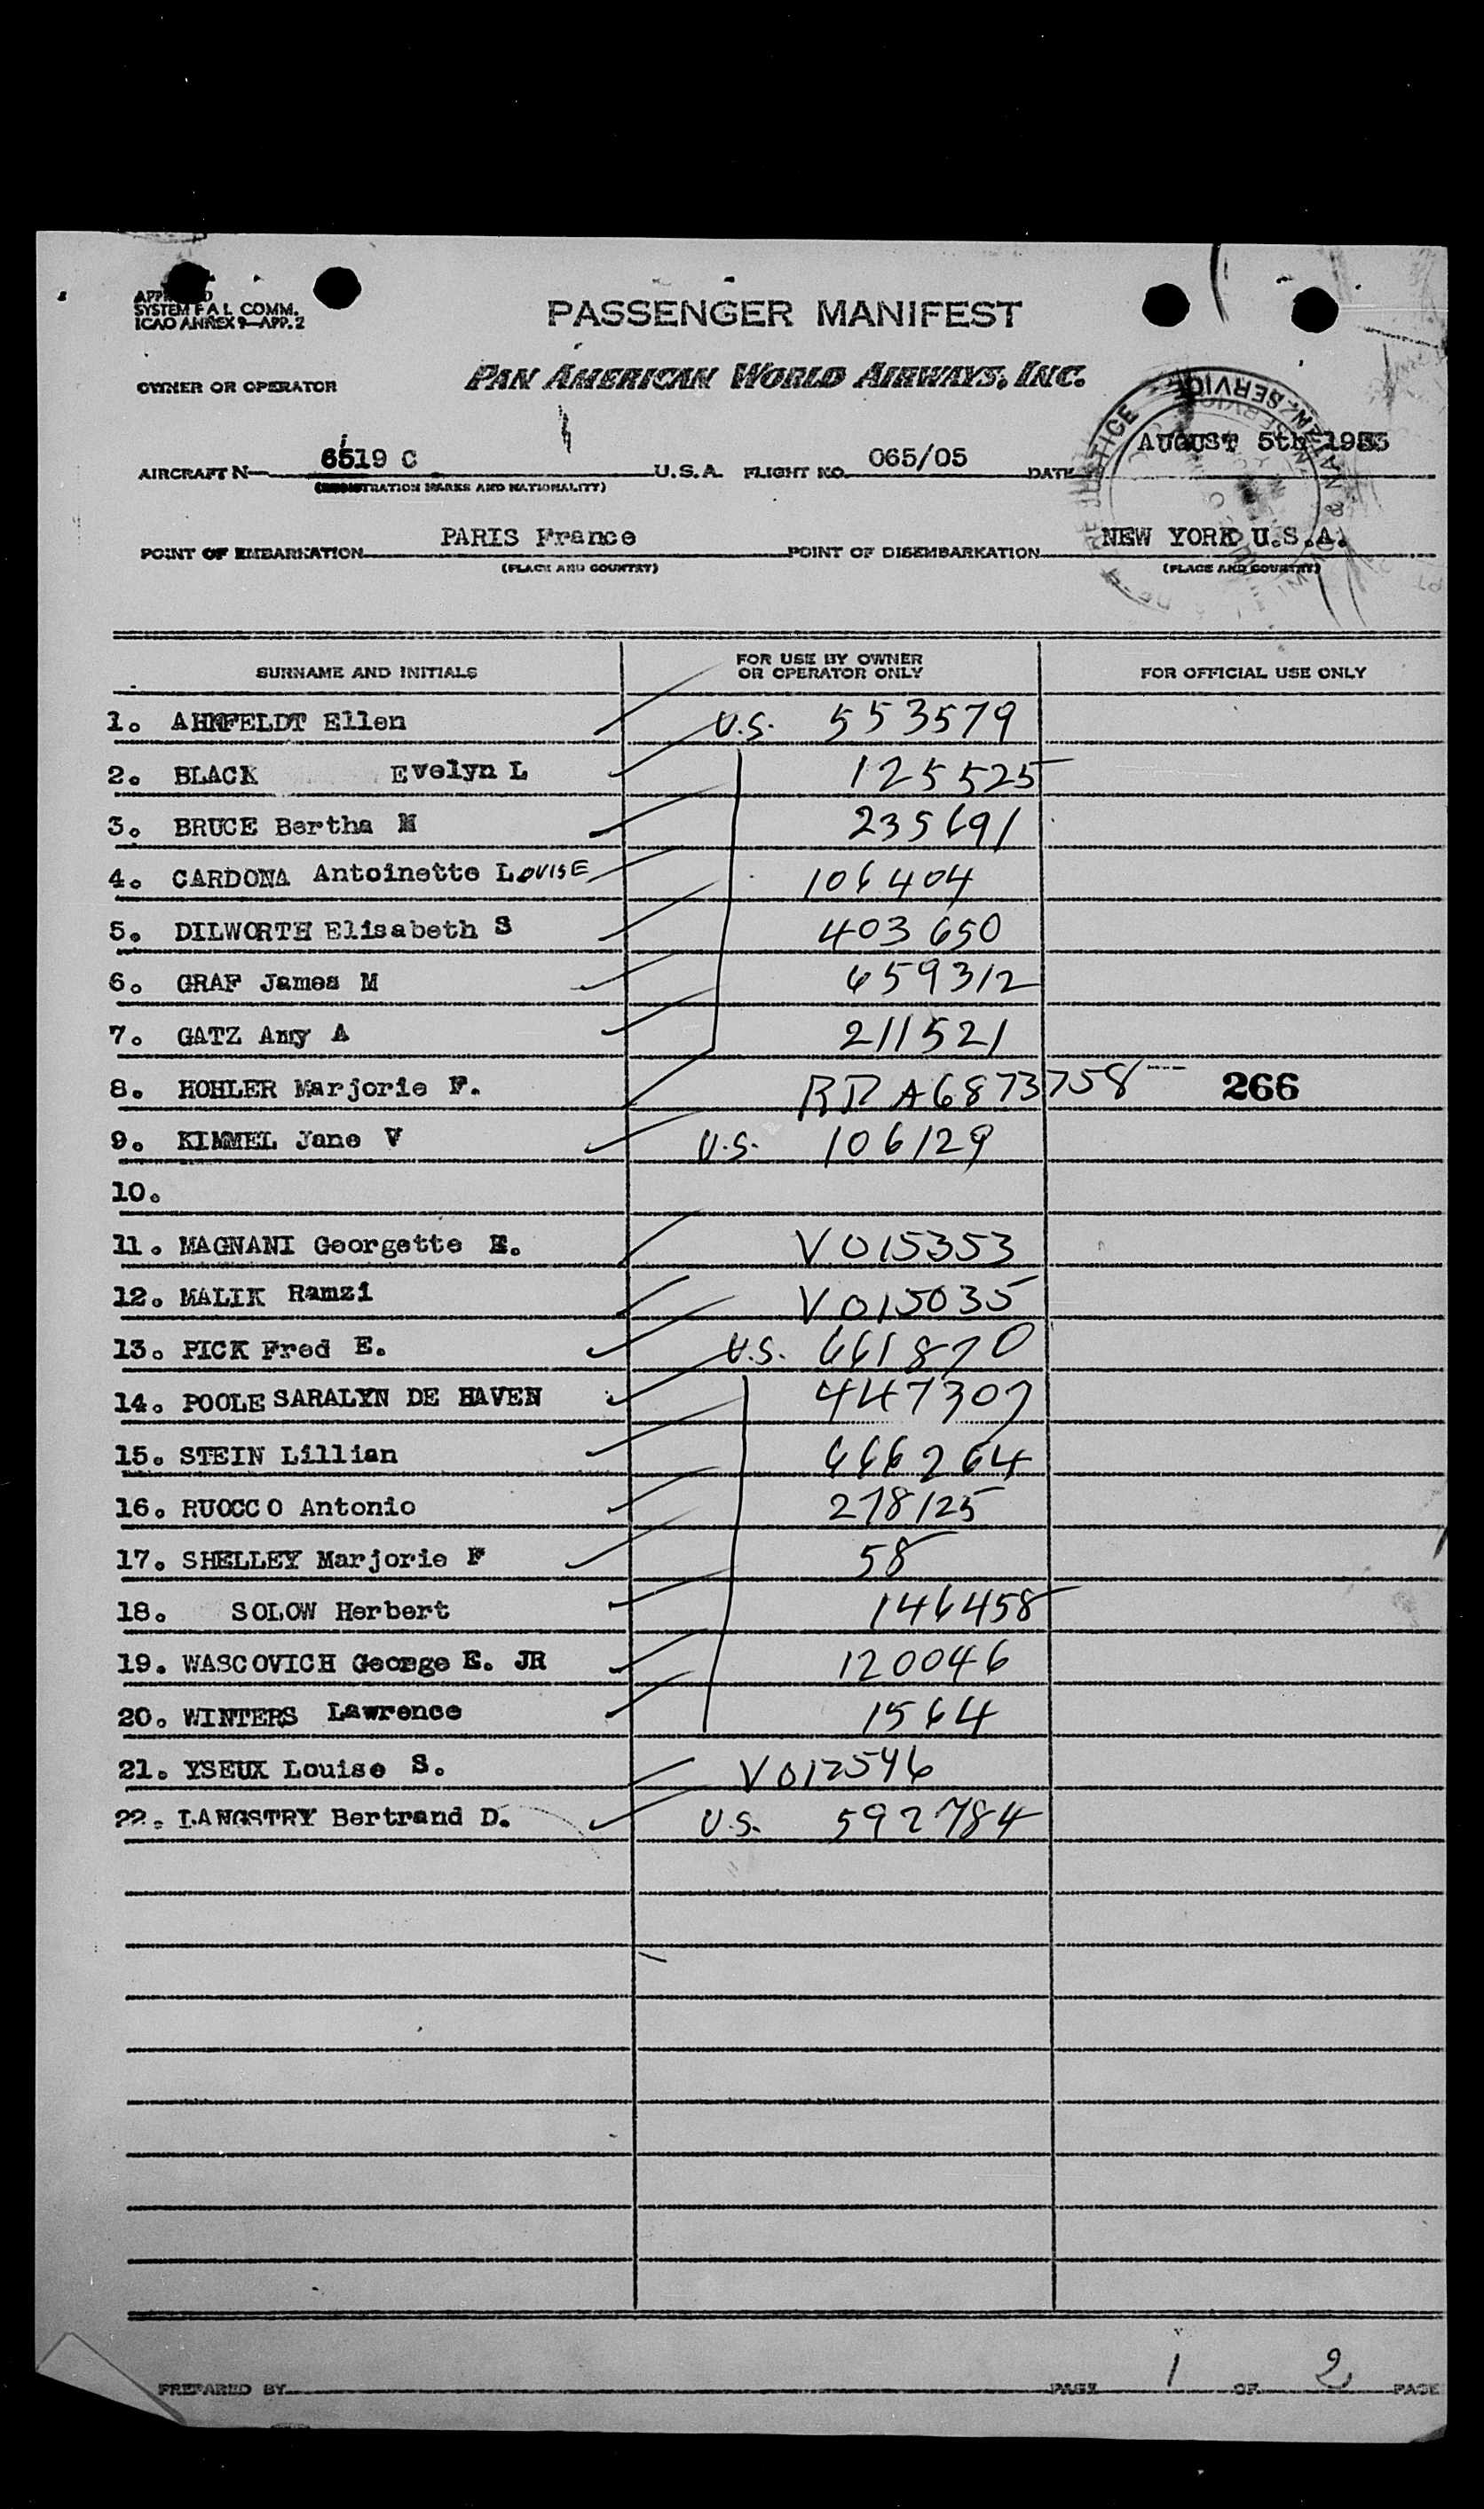 PASSENGER MANIFEST
SYSTEM F A L COMM.
ICAO ANNEX 9—APP. 2
OWNER OR OPERATOR PAN AMERICAN WORLD AIRWAYS, INC.
AIRCRAFT N— 6519 C U.S.A. FLIGHT NO. 065/05 DATE AUGUST 5th
(REGISTRATION MARKS AND NATIONALITY)
POINT OF EMBARKATION PARIS France POINT OF DISEMBARKATION NEW YORK U.S.A.
(PLACE AND COUNTRY) (PLACE AND COUNTRY)
SURNAME AND INITIALS FOR USE BY OWNER OR OPERATOR ONLY FOR OFFICIAL USE ONLY
1. Ellen U.S. 553579
2. BLACK Evelyn L 125525
3. BRUCE Bertha M 235691
4. CARDONA Antoinette LOUISE 106404
5. DILWORTH Elisabeth S 403650
6. GRAF James M 659312
7. GATZ Amy A 211521
8. HOHLER Marjorie F. A6873758 266
9. KIMMEL Jane V U.S. 106129
10.
11. MAGNANI Georgette E. V015353
12. MALIK Ramzi V015035
13. PICK Fred E. U.S. 661870
14. POOLE SARALYN DE HAVEN 447307
15. STEIN Lillian 666264
16. RUOCCO Antonio 278125
17. SHELLEY Marjorie F 58
18. SOLOW Herbert 146458
19. WASCOVICH George E. JR 120046
20. WINTERS Lawrence 1564
21. YSEUX Louise S. V012546
22. LANGSTRY Bertrand D. U.S. 592784
PREPARED BY PAGE 1 OF 2 PAGE